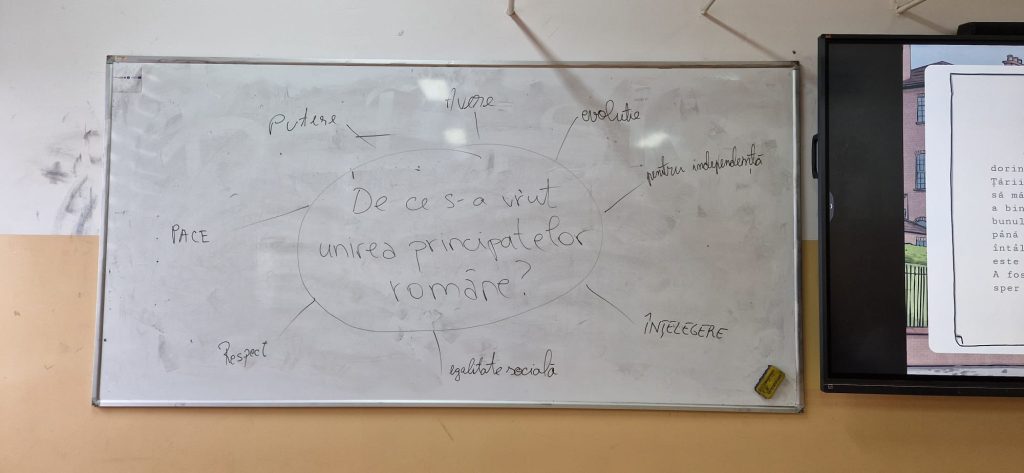 Avere
putere
evoluție
pentru independență
De ce s-a vrut
unirea principatelor
române?
PACE
ÎNȚELEGERE
Respect
egalitate socială
dorin
Țării
să mă
a bin
bunul
până
întâl
este
A fos
sper